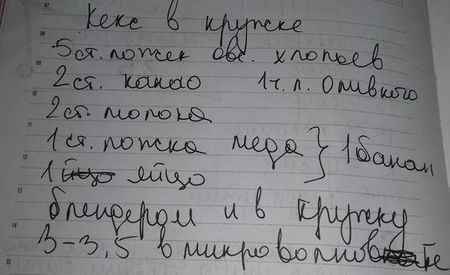 Кекс в кружке
5 ст. ложек овс. хлопьев
2 ст. какао 1 ч. л. Оливкого
2 ст. молока
1 ст. ложка меда } 1 банан
1 яйцо
блендером и в кружку
3-3,5 в микроволновке